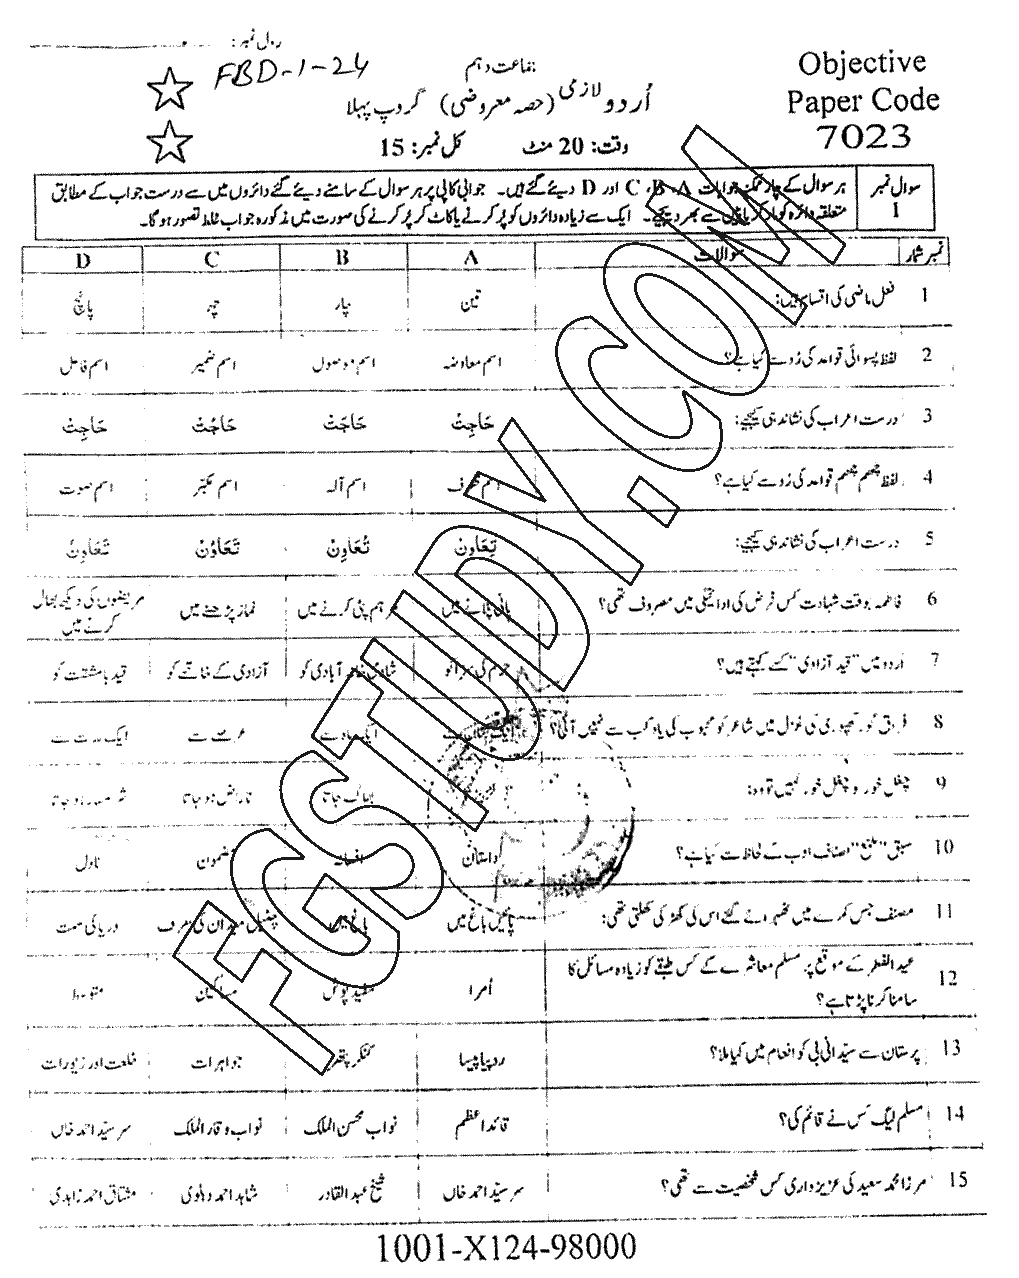 رول نمبر:
FBD-1-24
جماعت دہم
Objective
Paper Code
7023
اُردو لازمی (حصہ معروضی) گروپ پہلا
وقت: 20 منٹ کل نمبر: 15
سوال نمبر 1
ہر سوال کے چار ممکنہ جوابات A، B، C اور D دیئے گئے ہیں۔ جوابی کاپی پر ہر سوال کے سامنے دیئے گئے دائروں میں سے درست جواب کے مطابق
متعلقہ دائرہ کو مارکر یا پین سے بھر دیجیے۔ ایک سے زیادہ دائروں کو پُر کرنے یا کاٹ کر پُر کرنے کی صورت میں مذکورہ جواب غلط تصور ہو گا۔
نمبر شمار سوالات A B C D
1 فعل ماضی کی اقسام ہیں: تین چار چھ پانچ
2 لفظ پسوائی قواعد کی رُو سے کیا ہے؟ اسم معاوضہ اسم موصول اسم ضمیر اسم فاعل
3 درست اعراب کی نشاندہی کیجیے: حَاجِتْ حَاجَتْ حَاجُتْ حَاجِتْ
4 لفظ چھم چھم قواعد کی رُو سے کیا ہے؟ اسم ظرف اسم آلہ اسم مکبّر اسم صوت
5 درست اعراب کی نشاندہی کیجیے: تِعَاوِنْ تُعَاوِنْ تَعَاوُنْ تَعَاوِنْ
6 فاطمہ بوقت شہادت کس فرض کی ادائیگی میں مصروف تھی؟ پانی پلانے میں مرہم پٹی کرنے میں نماز پڑھنے میں مریضوں کی دیکھ بھال کرنے میں
7 اُردو میں "قید آزادی" کسے کہتے ہیں؟ جرم کی سزا کو شادی خانہ آبادی کو آزادی کے خاتمے کو قید بامشقت کو
8 فراق گورکھپوری کی غزل میں شاعر کو محبوب کی یاد کب سے نہیں آئی؟ عرصے سے ایک مدت سے
9 چغل خور کو چغل خور کہیں تو وہ: بھاگ جاتا ناراض ہو جاتا شرمندہ ہو جاتا
10 سبق "ملمع" اصناف ادب کے لحاظ سے کیا ہے؟ داستان افسانہ مضمون ناول
11 مصنف جس کمرے میں ٹھہرائے گئے اس کی کھڑکی کھلتی تھی: پائیں باغ میں باغ میں چٹیل میدان کی طرف دریا کی سمت
12 عید الفطر کے موقع پر مسلم معاشرے کے کس طبقے کو زیادہ مسائل کا
سامنا کرنا پڑتا ہے؟ اُمرا سفید پوش مساکین متوسط
13 پرستان سے سیّدانی بی کو انعام میں کیا ملا؟ روپیا پیسا کنکر پتھر جواہرات خلعت اور زیورات
14 مسلم لیگ کس نے قائم کی؟ قائداعظم نواب محسن الملک نواب وقار الملک سر سیّد احمد خاں
15 مرزا محمد سعید کی عزیز داری کس شخصیت سے تھی؟ سر سیّد احمد خاں شیخ عبدالقادر شاہد احمد دہلوی مشتاق احمد زاہدی
FGSTUDY.COM
1001-X124-98000